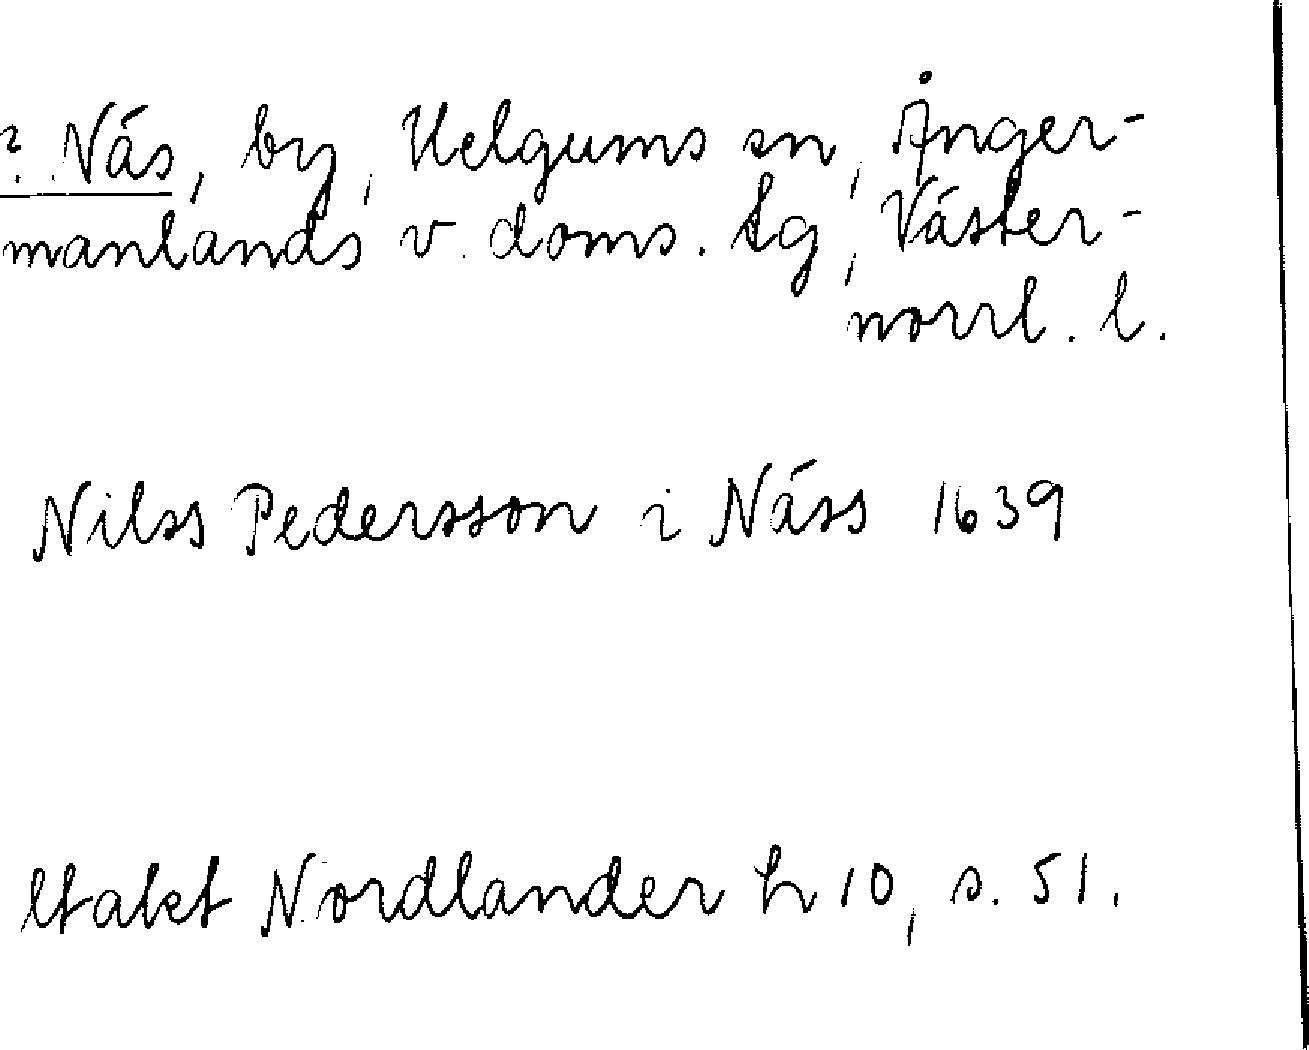 ? Näs, by, Helgums sn, Ånger-
manlands v. doms. tg, Väster-
norrl. l.
Nilss Pedersson i Näss 1639
Utakt Nordlander h 10, s. 51.